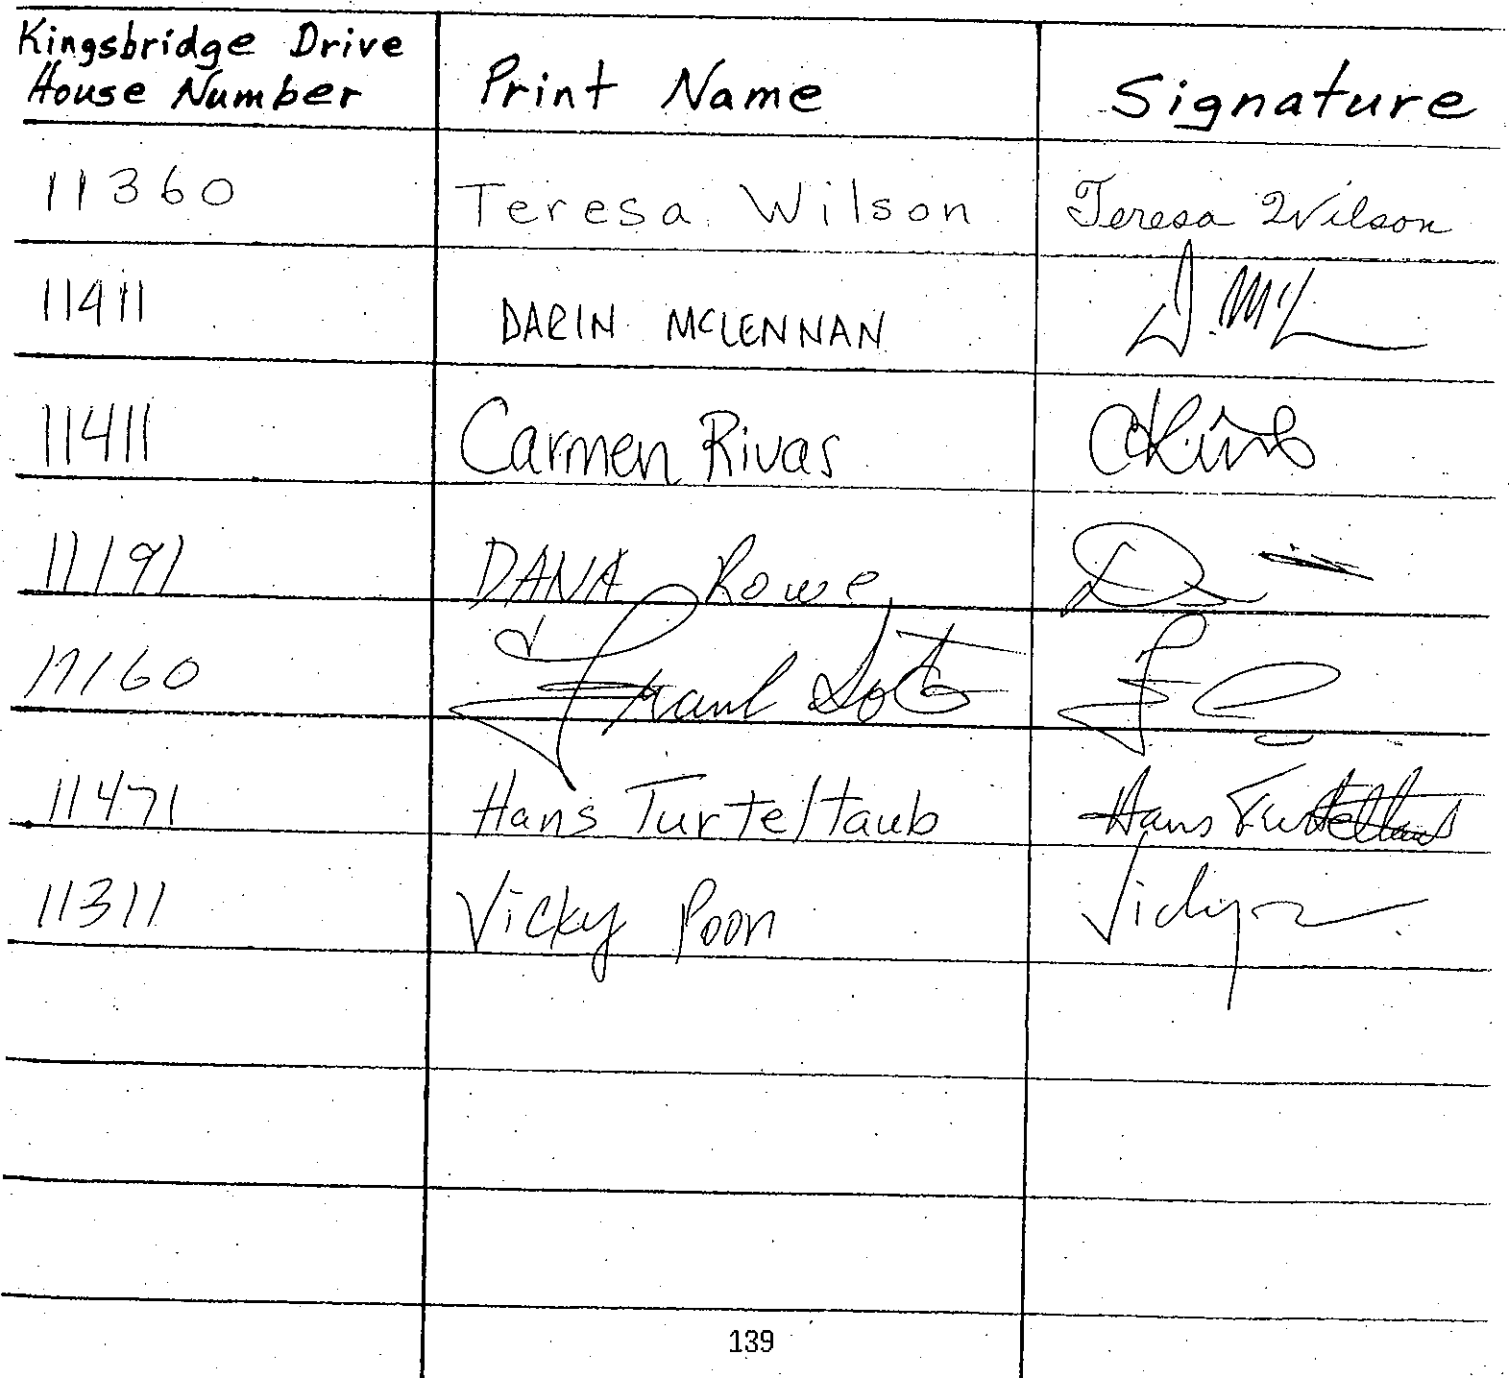 Kingsbridge Drive
House Number Print Name Signature
11360 Teresa Wilson Teresa Wilson
11411 DARIN MCLENNAN D. McL
11411 Carmen Rivas
11191 DANA Rowe
11160 Frank Soto
11471 Hans Turteltaub Hans Turteltaub
11311 Vicky Poon Vicky
139